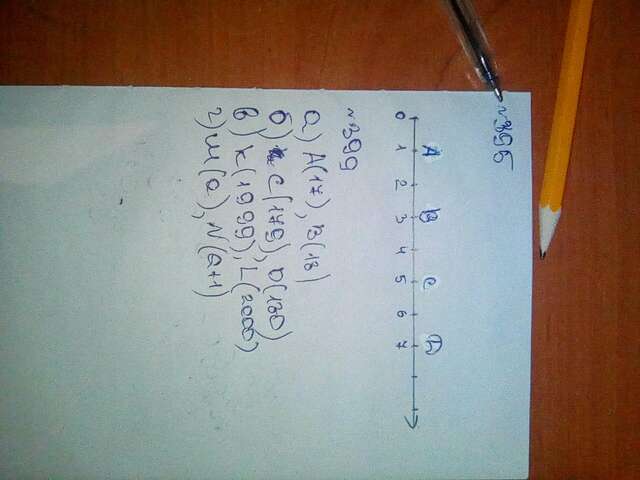 №395
A B C D
0 1 2 3 4 5 6 7
№399
а) A(17), B(18)
б) C(179), D(180)
в) K(1999), L(2000)
г) M(a), N(a+1)